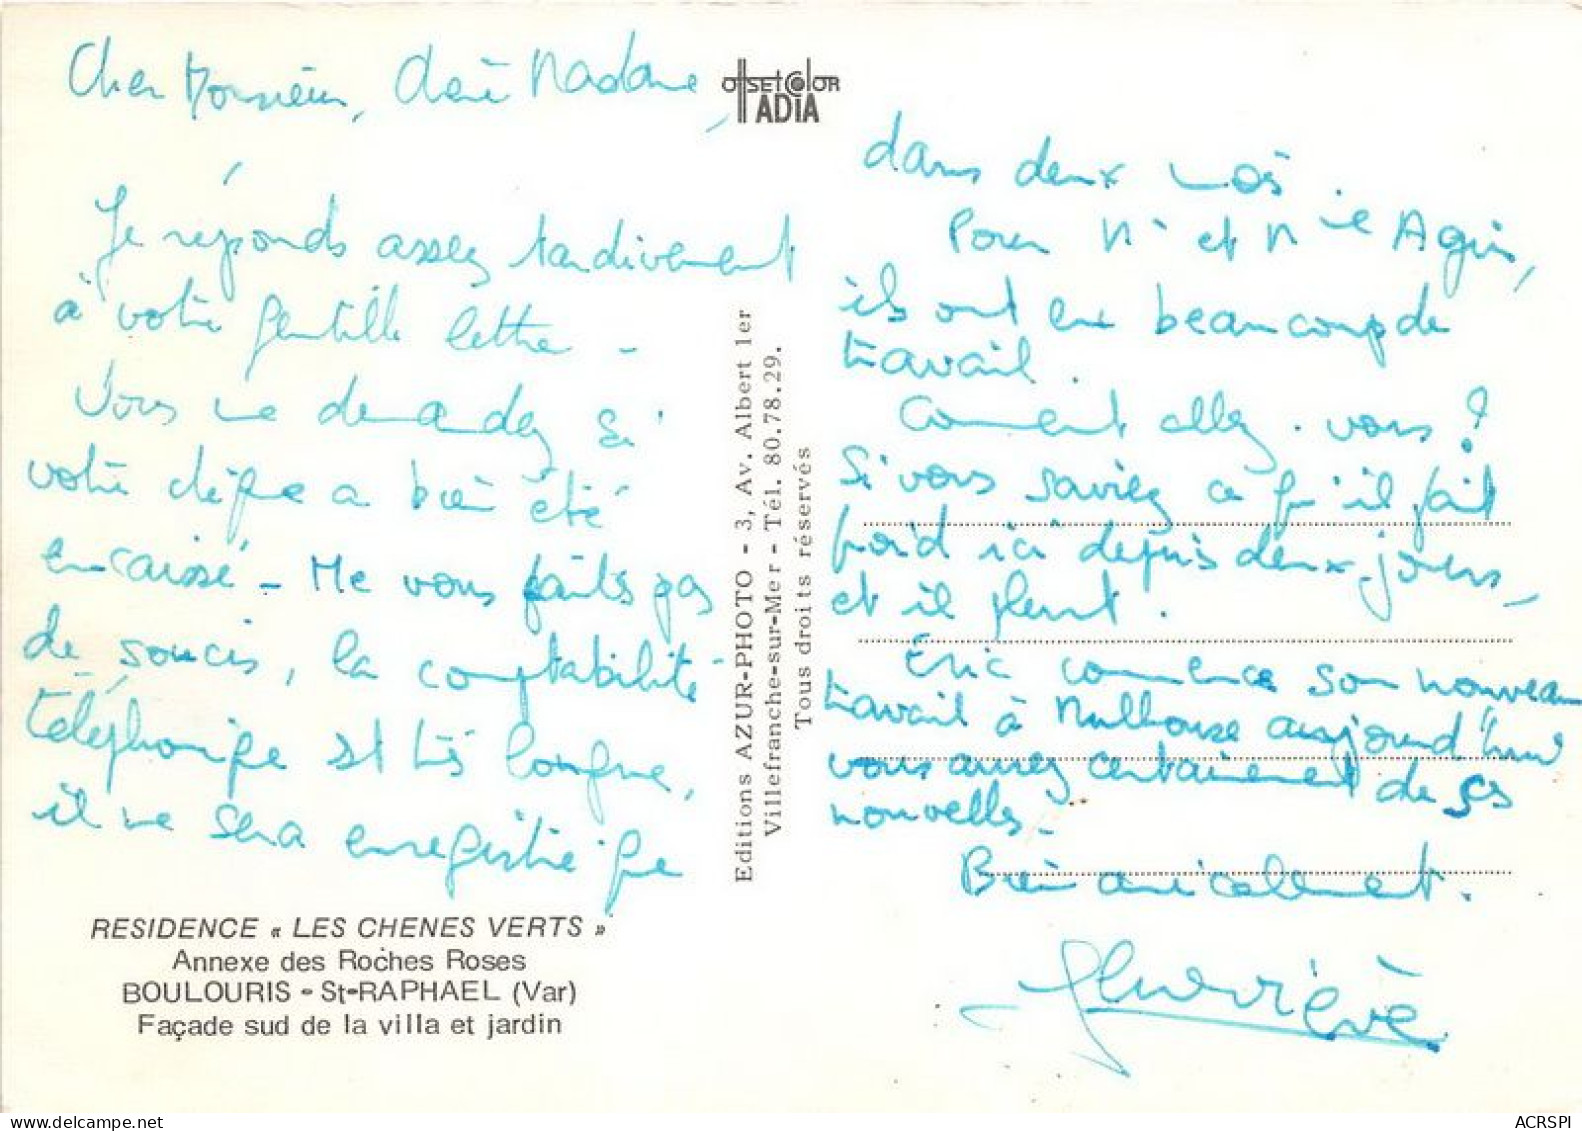 Cher Monsieur, chère Madame,
Je réponds assez tardivement
à votre gentille lettre -
Vous me demandez si
votre chèque a bien été
encaissé - Ne vous faites pas
de soucis, la comptabilité
téléphonique est très longue,
il ne sera enregistré que
RESIDENCE « LES CHENES VERTS »
Annexe des Roches Roses
BOULOURIS - St-RAPHAEL (Var)
Façade sud de la villa et jardin
OffSETCOlOR
ADIA
Editions AZUR-PHOTO - 3, Av. Albert 1er
Villefranche-sur-Mer - Tél. 80.78.29.
Tous droits réservés
dans deux mois.
Pour Mr et Mme
ils ont eu beaucoup de
travail.
Comment allez-vous ?
Si vous saviez ce qu'il fait
froid ici depuis deux jours,
et il pleut.
Eric commence son nouveau
travail à Mulhouse aujourd'hui
vous aurez certainement de ses
nouvelles -
Bien amicalement.
Geneviève
ACRSPI